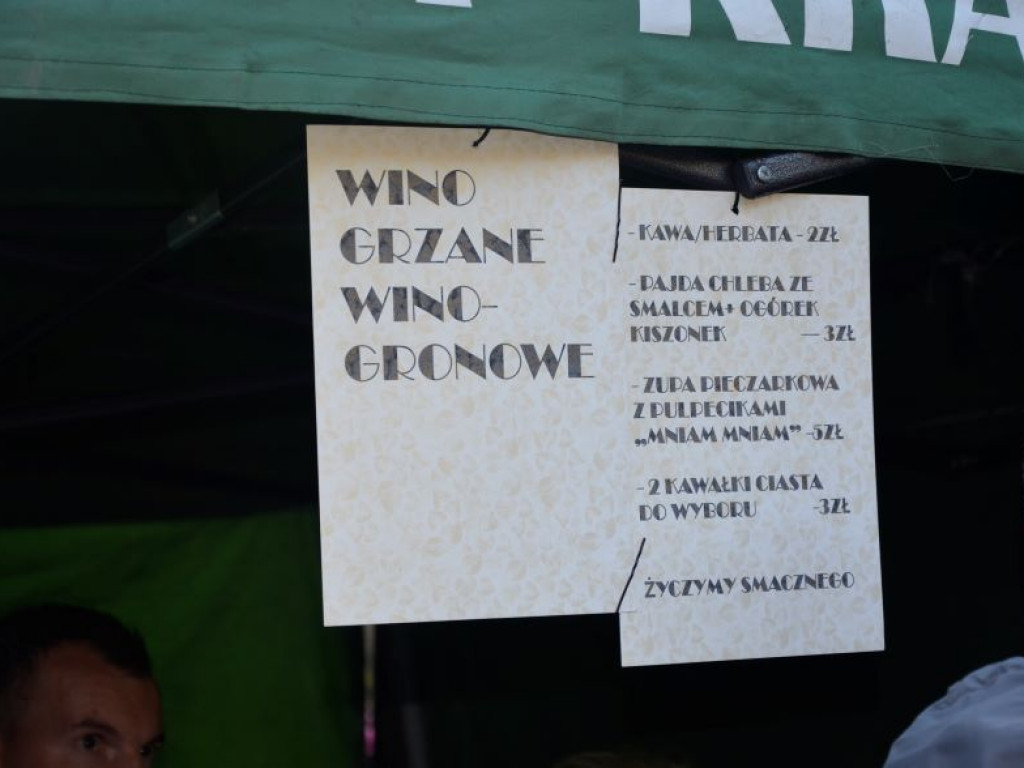 KRA
WINO
GRZANE
WINO-
GRONOWE
- KAWA/HERBATA - 2ZŁ
- PAJDA CHLEBA ZE
SMALCEM+ OGÓREK
KISZONEK — 3ZŁ
- ZUPA PIECZARKOWA
Z PULPECIKAMI
„MNIAM MNIAM” -5ZŁ
- 2 KAWAŁKI CIASTA
DO WYBORU -3ZŁ
ŻYCZYMY SMACZNEGO